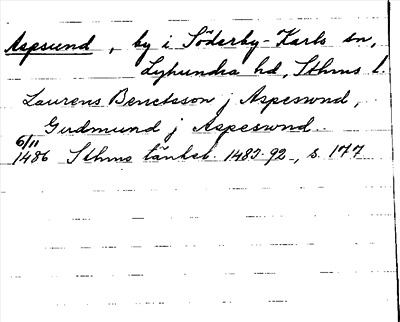 Aspsund, by i Söderby-Karls sn,
Lyhundra hd, Sthms l.
Laurens Benctsson j Aspeswnd,
Gudmund j Aspeswnd.
6/11
1486 Sthms tänkeb. 1483-92, s. 177